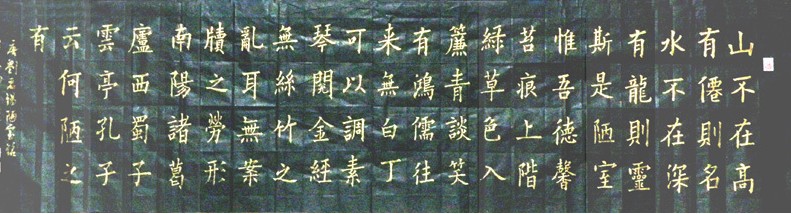 山不在高
有僊則名
水不在深
有龍則靈
斯是陋室
惟吾德馨
苔痕上階
綠草色入
簾青談笑
有鴻儒往
来無白丁
可以調素
琴閱金經
無絲竹之
亂耳無案
牘之勞形
南陽諸葛
廬西蜀子
雲亭孔子
云何陋之
有
唐劉禹錫陋室銘